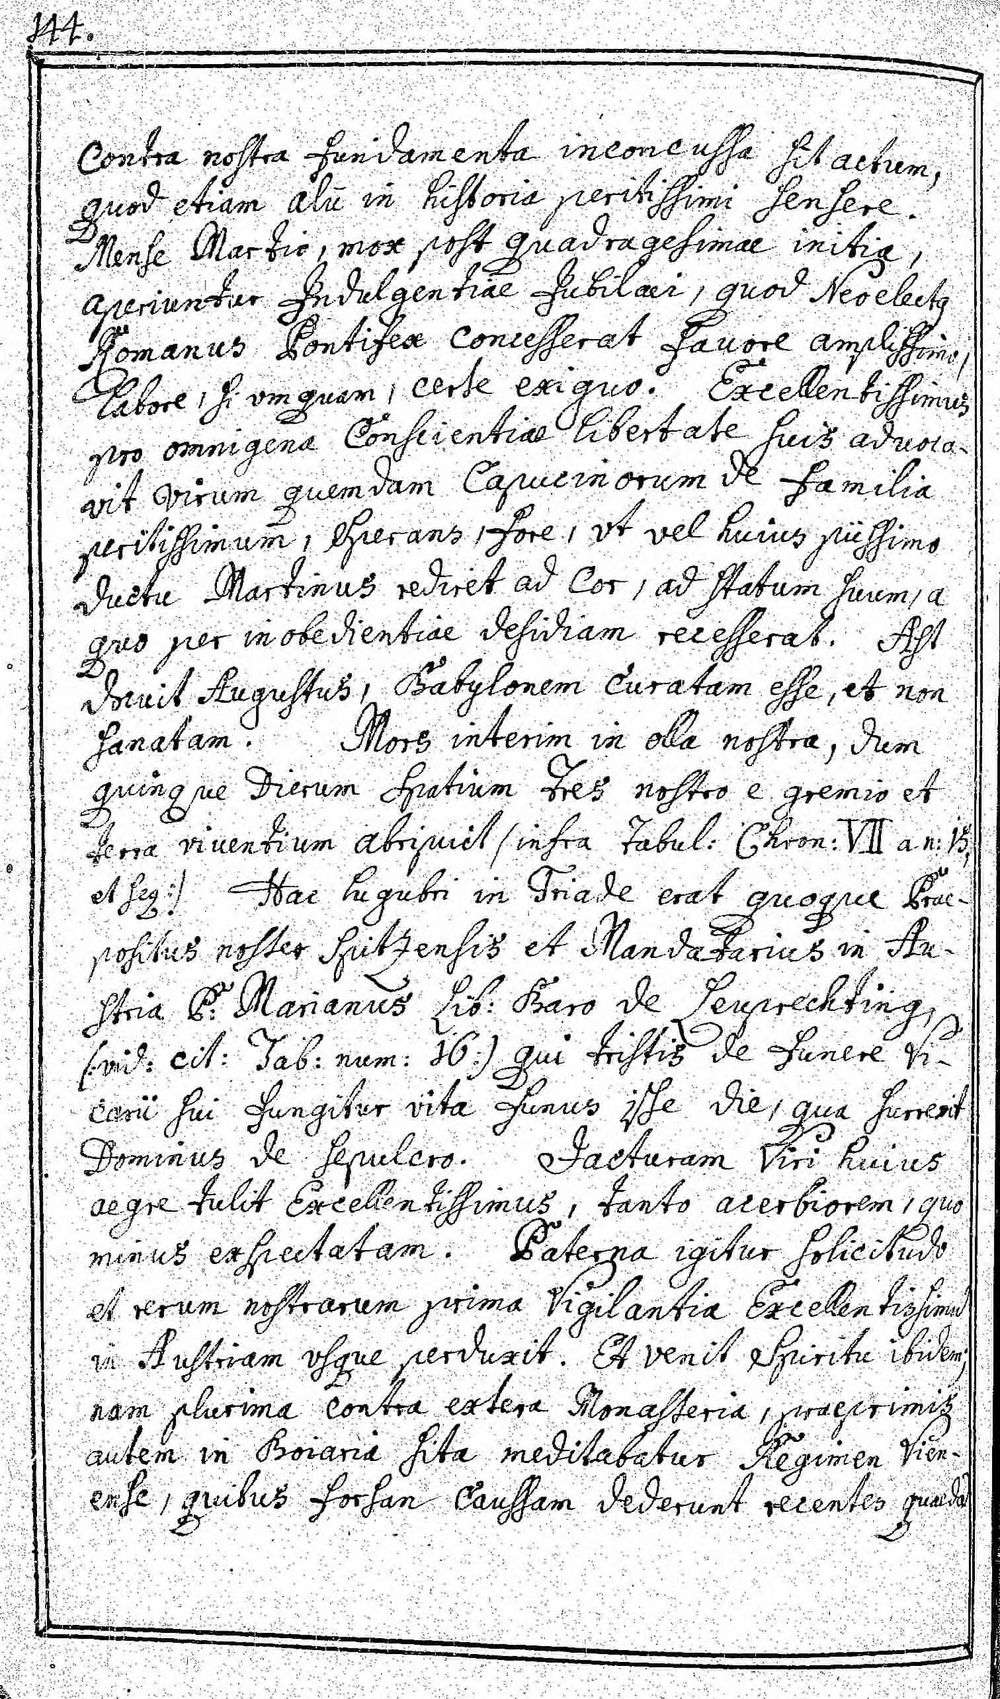 144.
Contra nostra fundamenta inconcussa sit actum,
quod etiam alii in historia peritissimi sensere.
Mense Martio, mox post quadragesimae initia,
aperiuntur Indulgentiae Jubilaei, quod Neoelectq
Romanus Pontifex concesserat favore amplissimo,
labore, si vmquam, certe exiguo. Excellentissimus
pro omnigena Conscientiae libertate suis aduoca-
vit virum quemdam Capucinorum de familia
peritissimum, sperans, fore, vt vel huius piissimo
ductu Martinus rediret ad Cor, ad statum suum, a
quo per inobedientiae desidiam recesserat. Ast
docuit Augustus, Babylonem curatam esse, et non
sanatam. Mors interim in olla nostra, dum
quinque Dierum spatium tres nostro e gremio et
terra viventium abripuit /infra Tabul: Chron: VII an: 15,
et seq:/ Hac lugubri in Triade erat quoque Prae-
positus noster spitzensis et Mandatarius in Au-
stria P: Marianus Lib: Baro de Leuprechting,
(:vid: cit: Tab: num: 16:) qui tristis de funere Vi-
carii sui fungitur vita funus ipse die, qua surrexit
Dominus de sepulcro. Jacturam Viri huius
aegre tulit Excellentissimus, tanto acerbiorem, quo
minus exspectatam. Paterna igitur solicitudo
et rerum nostrarum prima Vigilantia Excellentissimum
in Austriam vsque perduxit. Et venit Spiritu ibidem;
nam plurima contra extera Monasteria, praeprimis
autem in Boiaria sita meditabatur Regimen Vien-
ense, quibus forsan Caussam dederunt recentes quaedam